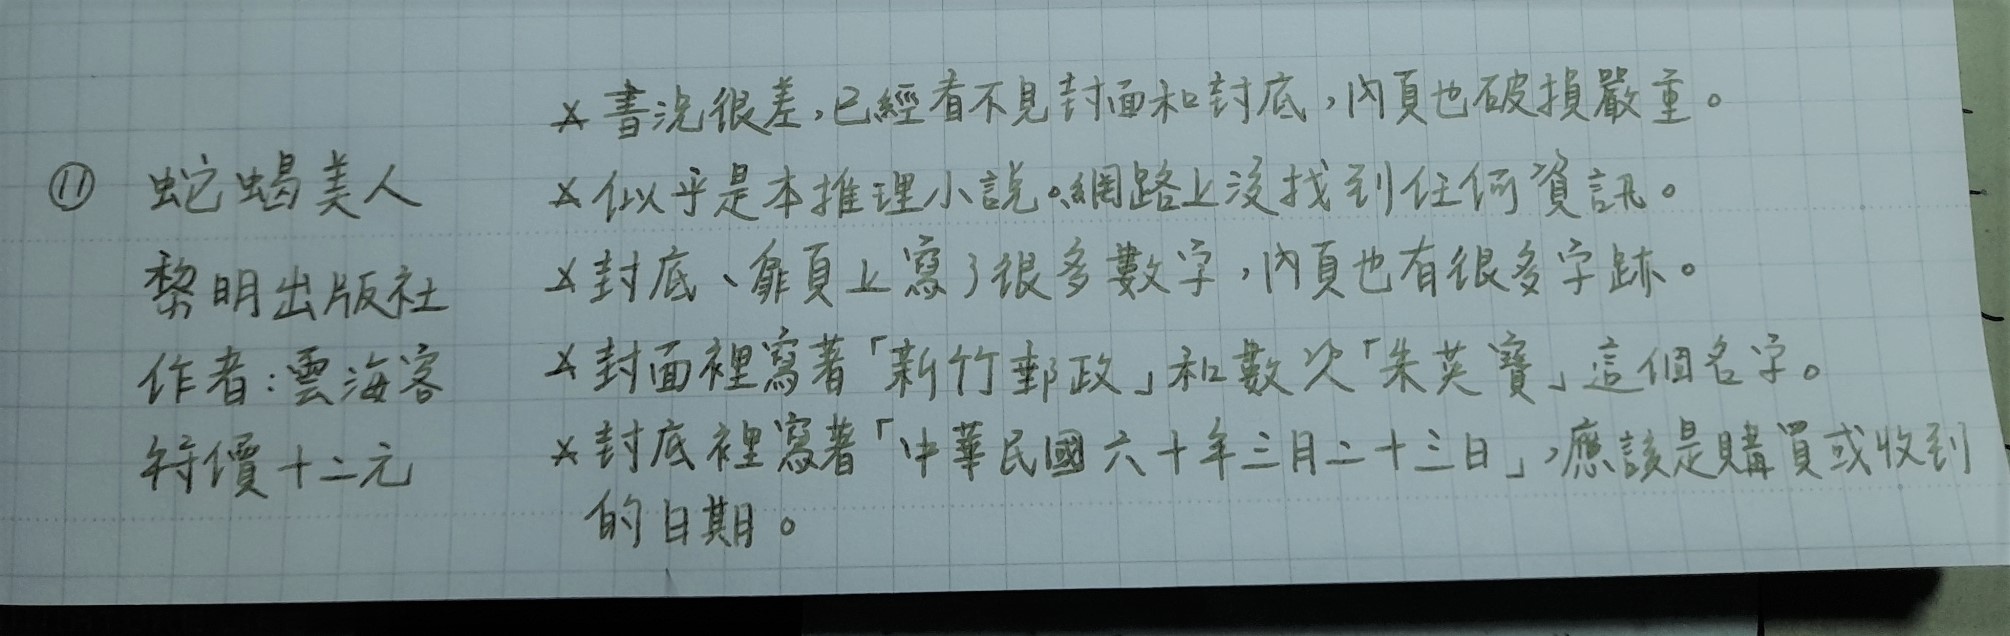 ⑪ 蛇蝎美人
黎明出版社
作者:雲海客
特價十二元
×書況很差,已經看不見封面和封底,內頁也破損嚴重。
×似乎是本推理小說。網路上沒找到任何資訊。
×封底、扉頁上寫了很多數字,內頁也有很多字跡。
×封面裡寫著「新竹郵政」和數次「朱英寶」這個名字。
×封底裡寫著「中華民國六十年三月二十三日」,應該是購買或收到
的日期。